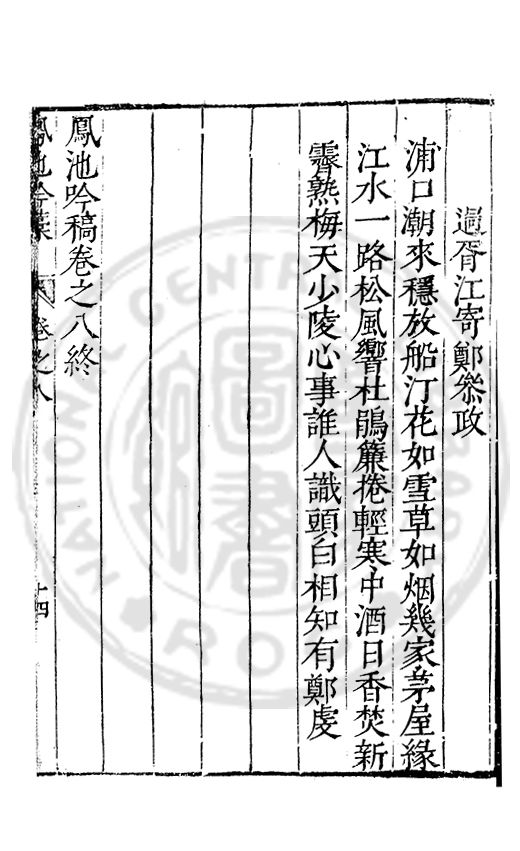 過胥江寄鄭叅政
浦口潮來穩放船汀花如雪草如烟幾家茅屋緣
江水一路松風響杜鵑簾捲輕寒中酒日香焚新
霽熟梅天少陵心事誰人識頭白相知有鄭虔
鳳池吟稿卷之八終
鳳池吟稾 卷之八 十四